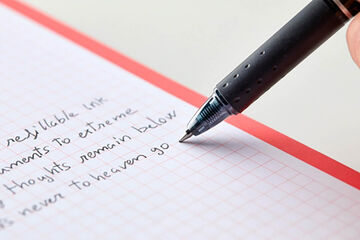 refillable ink
uments to extreme
y thoughts remain below
s never to heaven go